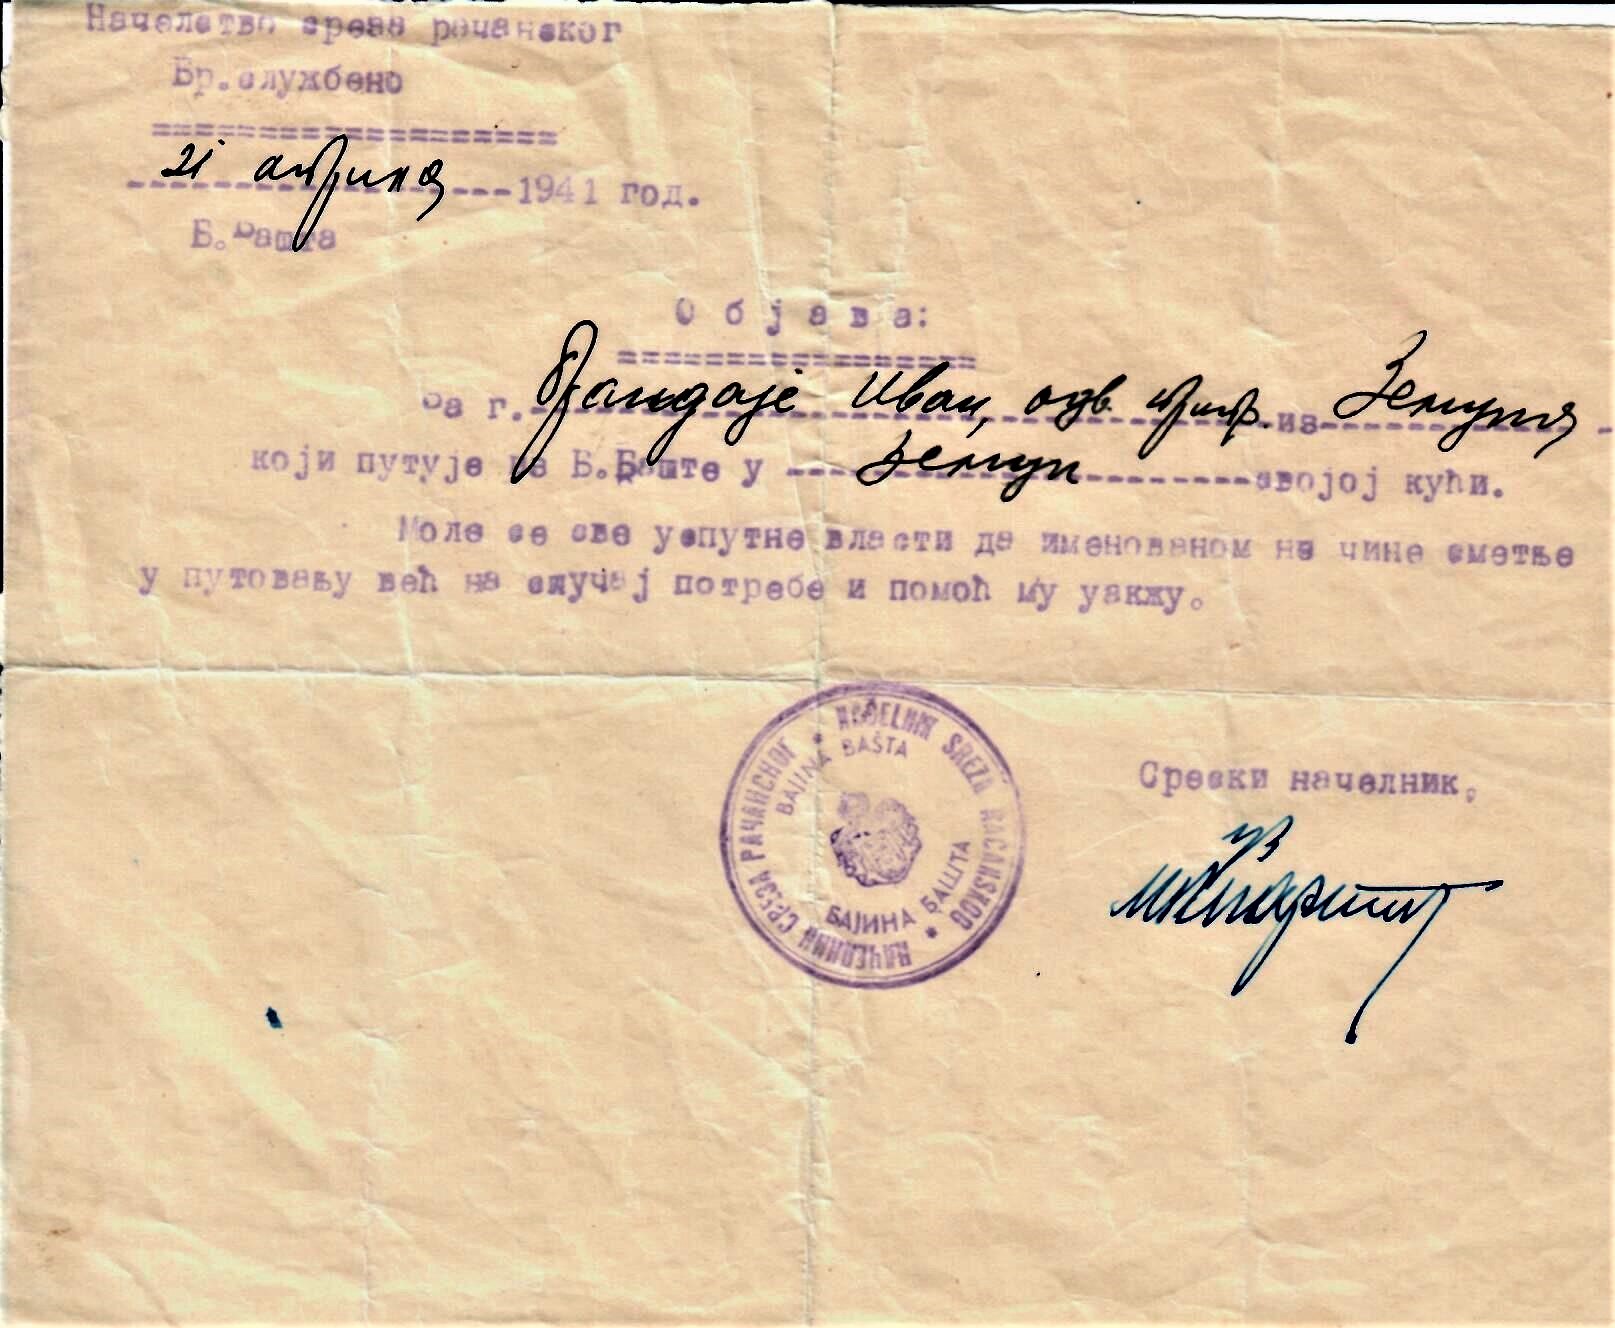 Начелство среза рачанског
Бр.службено
===================
21 априла 1941 год.
Б.Башта
О б ј а в а:
=================
За г. Иван, адв. из Земуна
који путује из Б.Баште у Земун својој кући.
Моле се све успутне власти да именованом не чине сметње
у путовању већ на случај потребе и помоћ му уакжу.
НАЧЕЛНИК СРЕЗА РАЧАНСКОГ * NAČELNIK SREZA RAČANSKOG *
BAJINA BAŠTA
БАЈИНА БАШТА
Срески начелник,